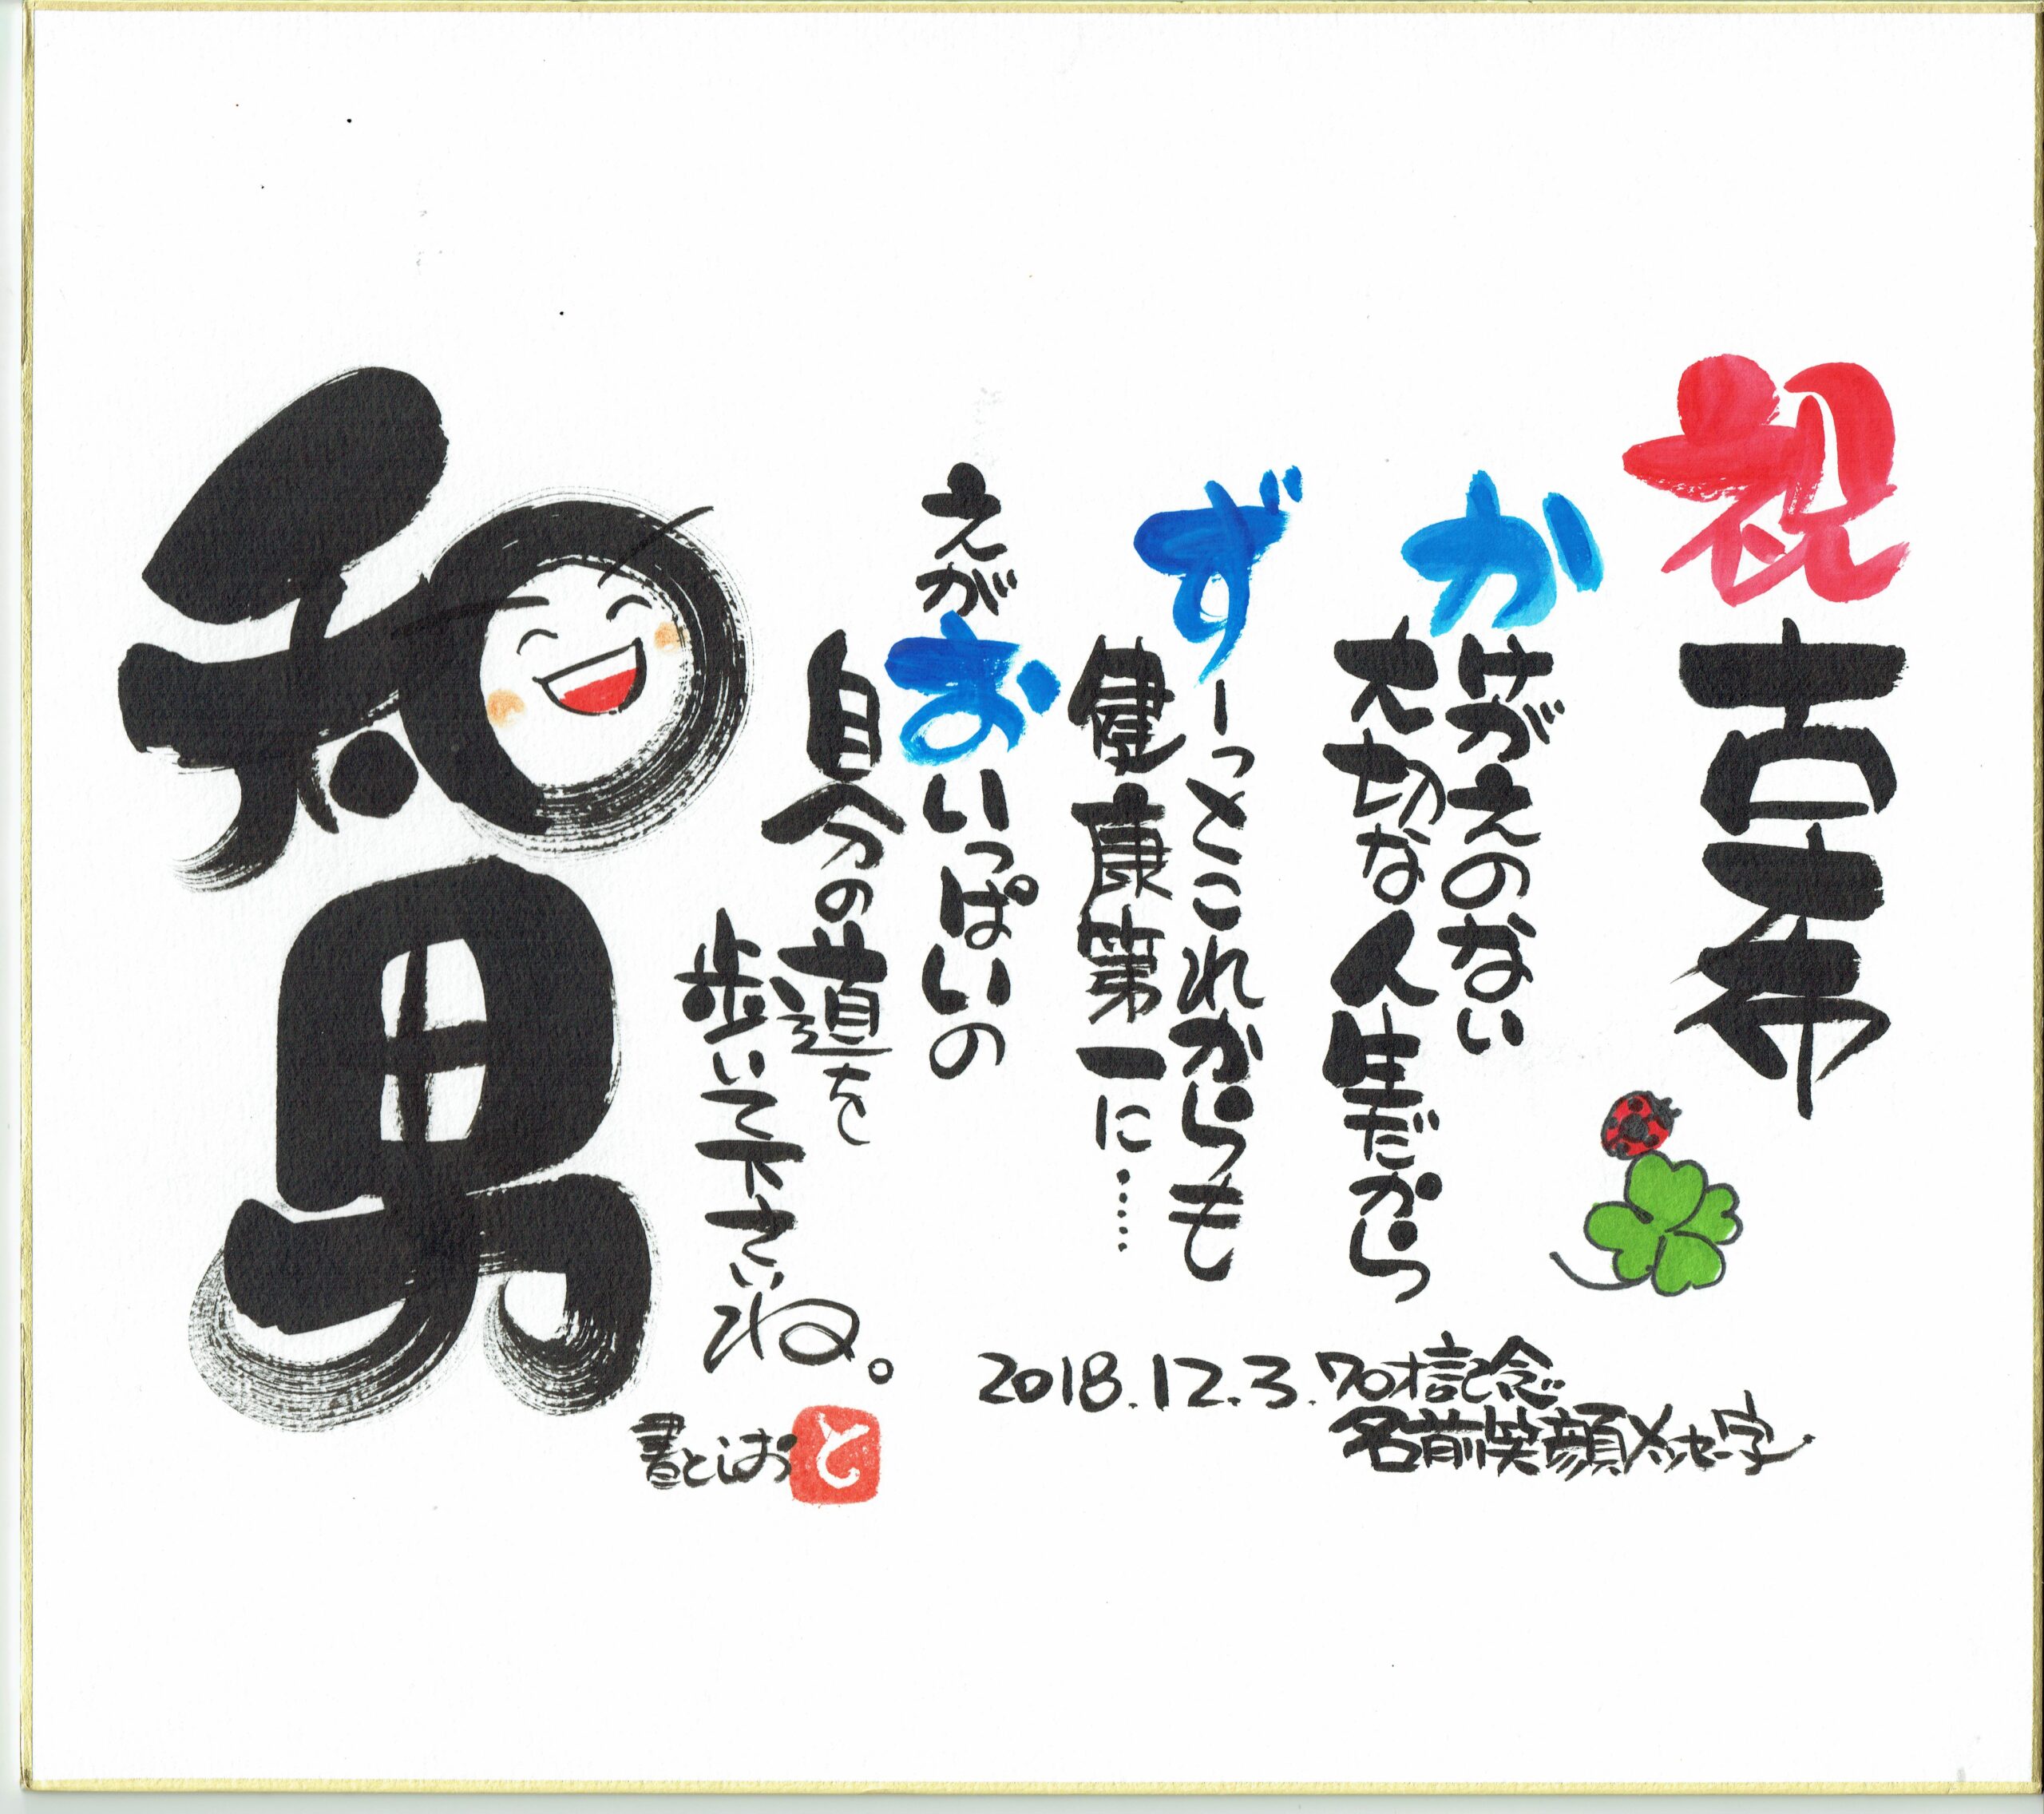 祝 古希
かけがえのない
大切な人生だから
ずーっとこれからも
健康第一に……
えがおいっぱいの
自分の道を
歩いて下さいね。
和男
2018.12.3.70才記念
名前笑顔メッセー字
書としお
と